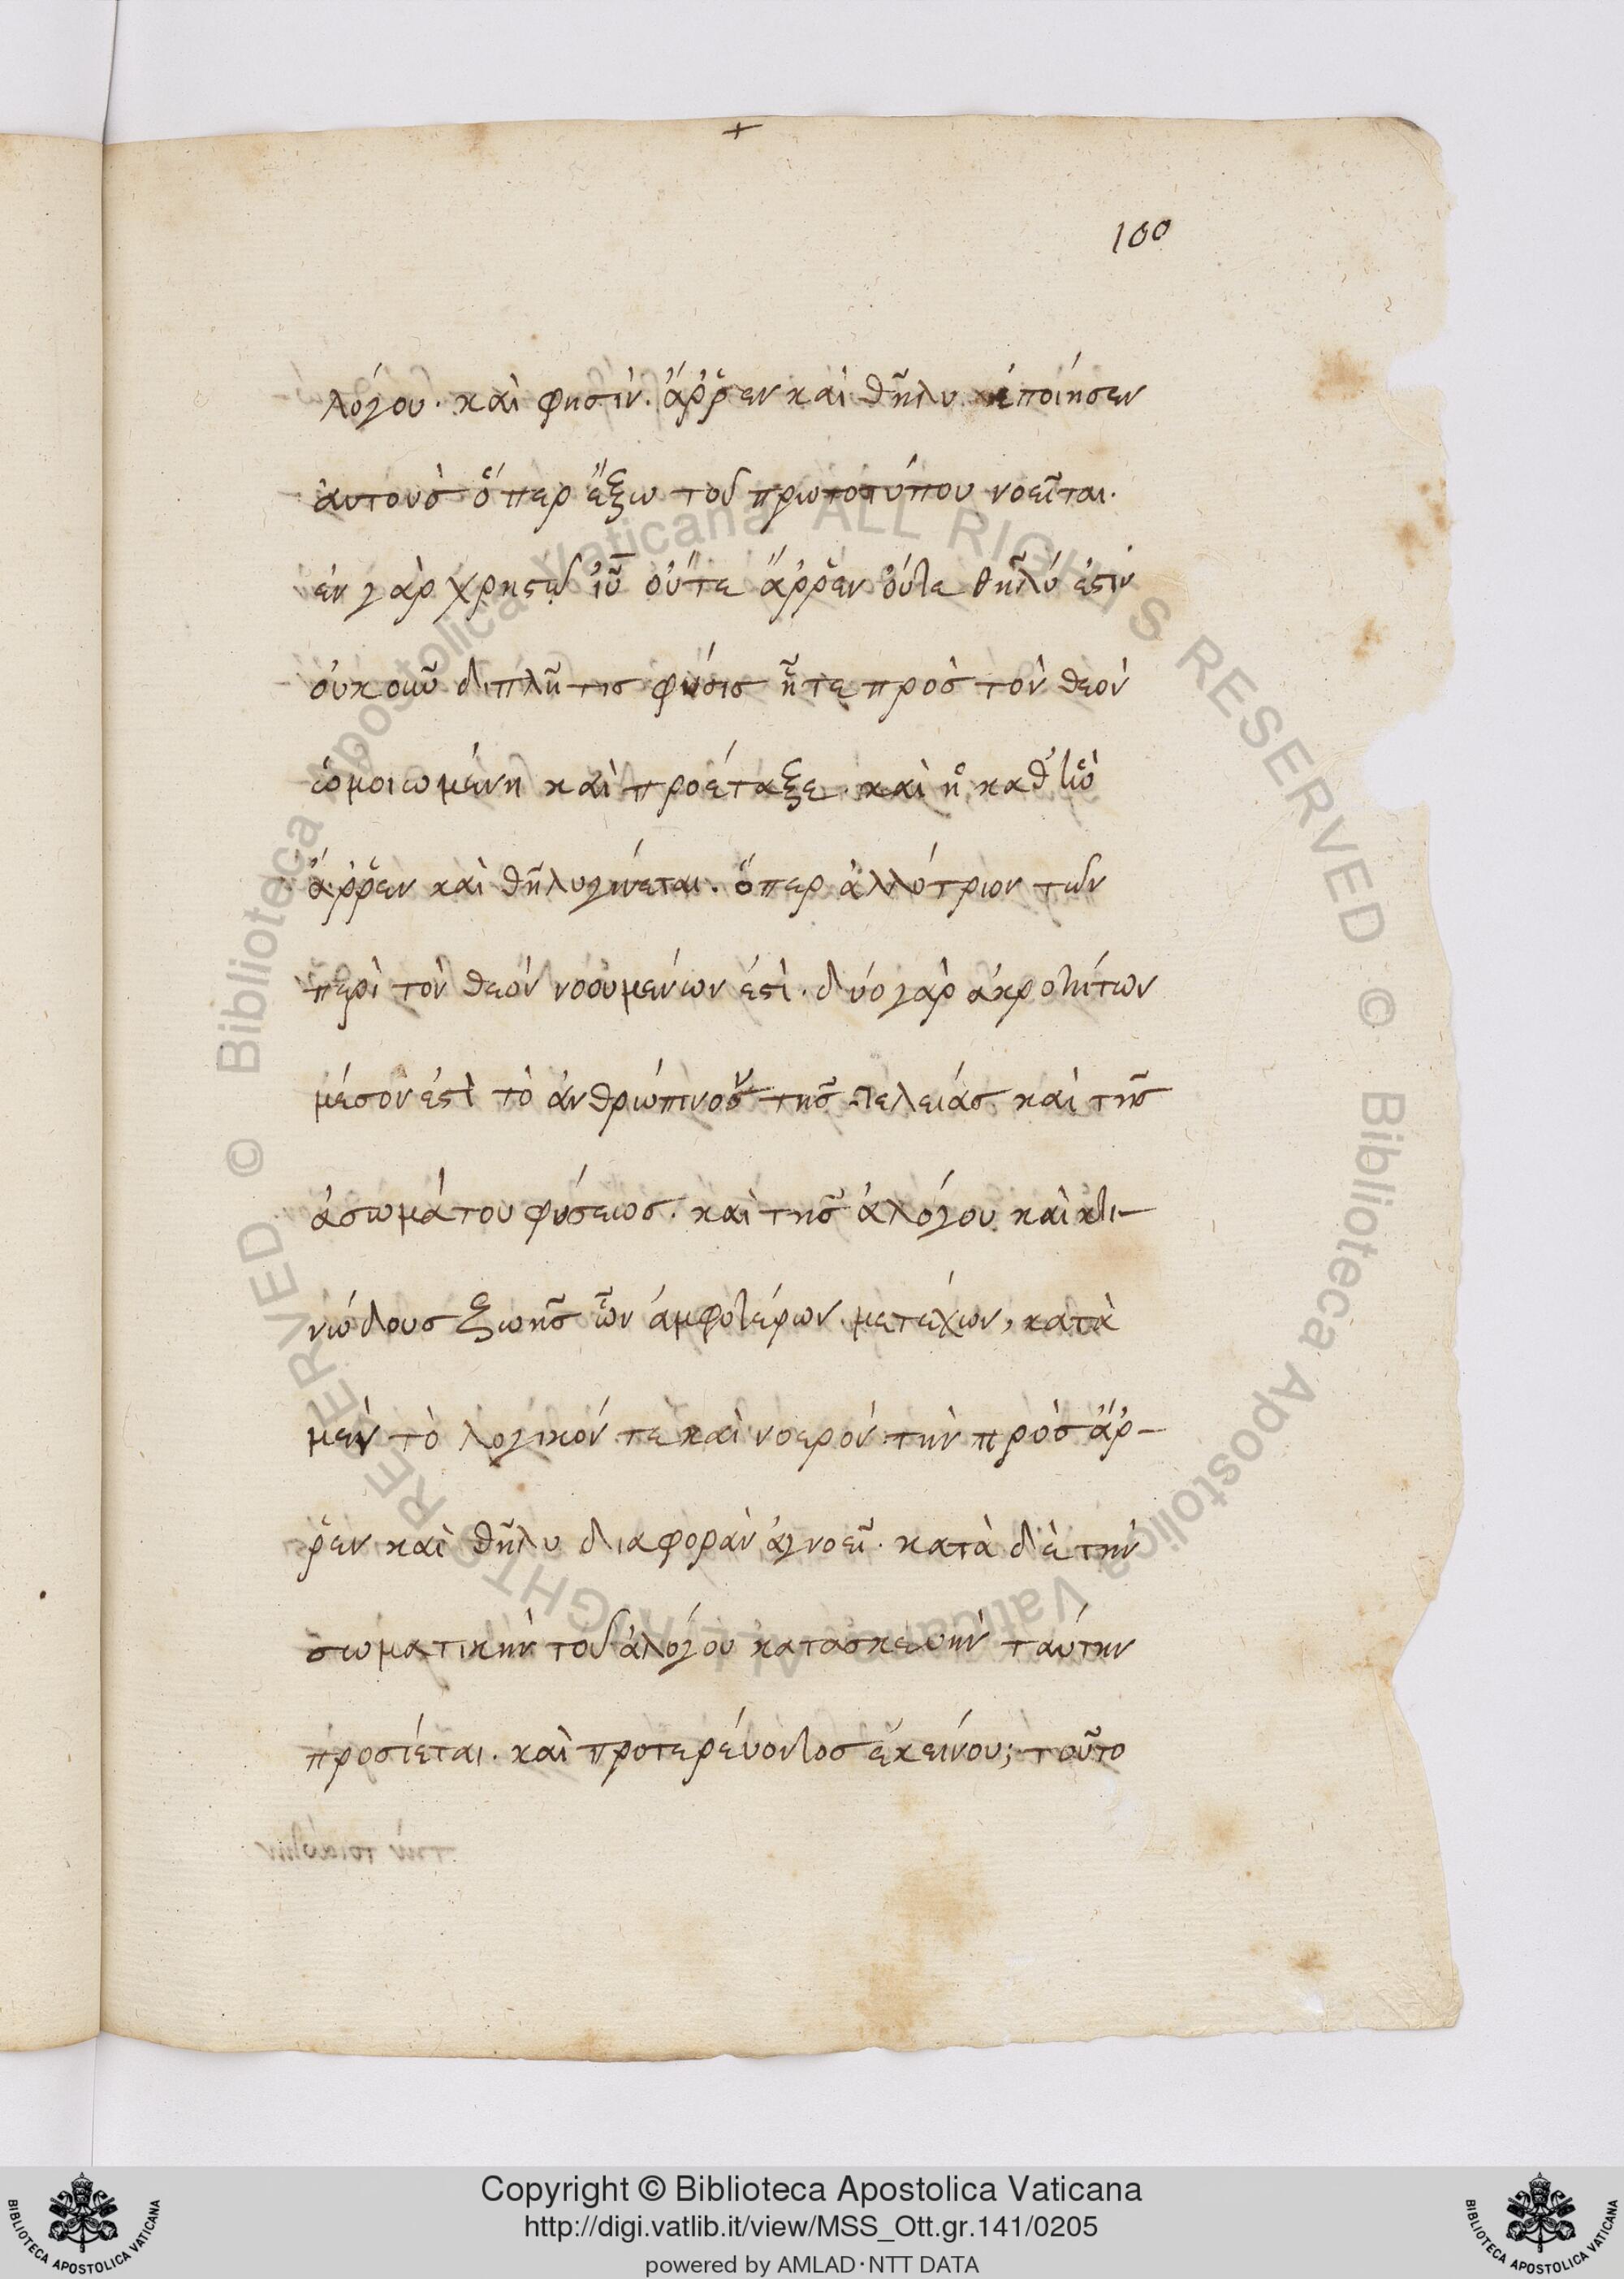 +
100
λόγου· καὶ φησὶν· ἄρῥεν καὶ θῆλυ ἐποίησεν
ἀυτοὺς ὅπερ ἔξω τοῦ πρωτοτύπου νοεῖται·
ἐν γὰρ χρηστῷ ἰῦ οὔτε ἄρῥεν ὄυτε θῆλύ ἐστιν
ὀυκοῦν διπλῆ τις φύσις ἥτε πρὸς τὸν θεὸν
ὁμοιωμένη καὶ προέταξε· καὶ ἡ καθ' ἣν
ἄρῥεν καὶ θῆλυ γίνεται· ὅπερ ἀλλότριον τῶν
περὶ τὸν θεὸν νοουμένων ἐστὶ· δύο γὰρ ἀκροτήτων
μέσον ἐστὶ τὸ ἀνθρώπινον τῆς τελείας καὶ τῆς
ἀσωμάτου φύσεως· καὶ τῆς ἀλόγου καὶ κτι-
νώδους ζωῆς ὧν ἀμφοτέρων μετέχων, κατὰ
μὲν τὸ λογικόν τε καὶ νοερὸν τὴν πρὸς ἄρ-
ῥεν καὶ θῆλυ διαφορὰν ἀγνοεῖ· κατὰ δὲ τὴν
σωματικὴν τοῦ ἀλόγου κατασκευὴν ταύτην
προσίεται· καὶ προτερέυοντος ἐκείνου; τοῦτο
Copyright © Biblioteca Apostolica Vaticana
http://digi.vatlib.it/view/MSS_Ott.gr.141/0205
powered by AMLAD·NTT DATA
BIBLIOTECA APOSTOLICA VATICANA
BIBLIOTECA APOSTOLICA VATICANA
© Biblioteca Apostolica Vaticana ALL RIGHTS RESERVED © Biblioteca Apostolica Vaticana ALL RIGHTS RESERVED